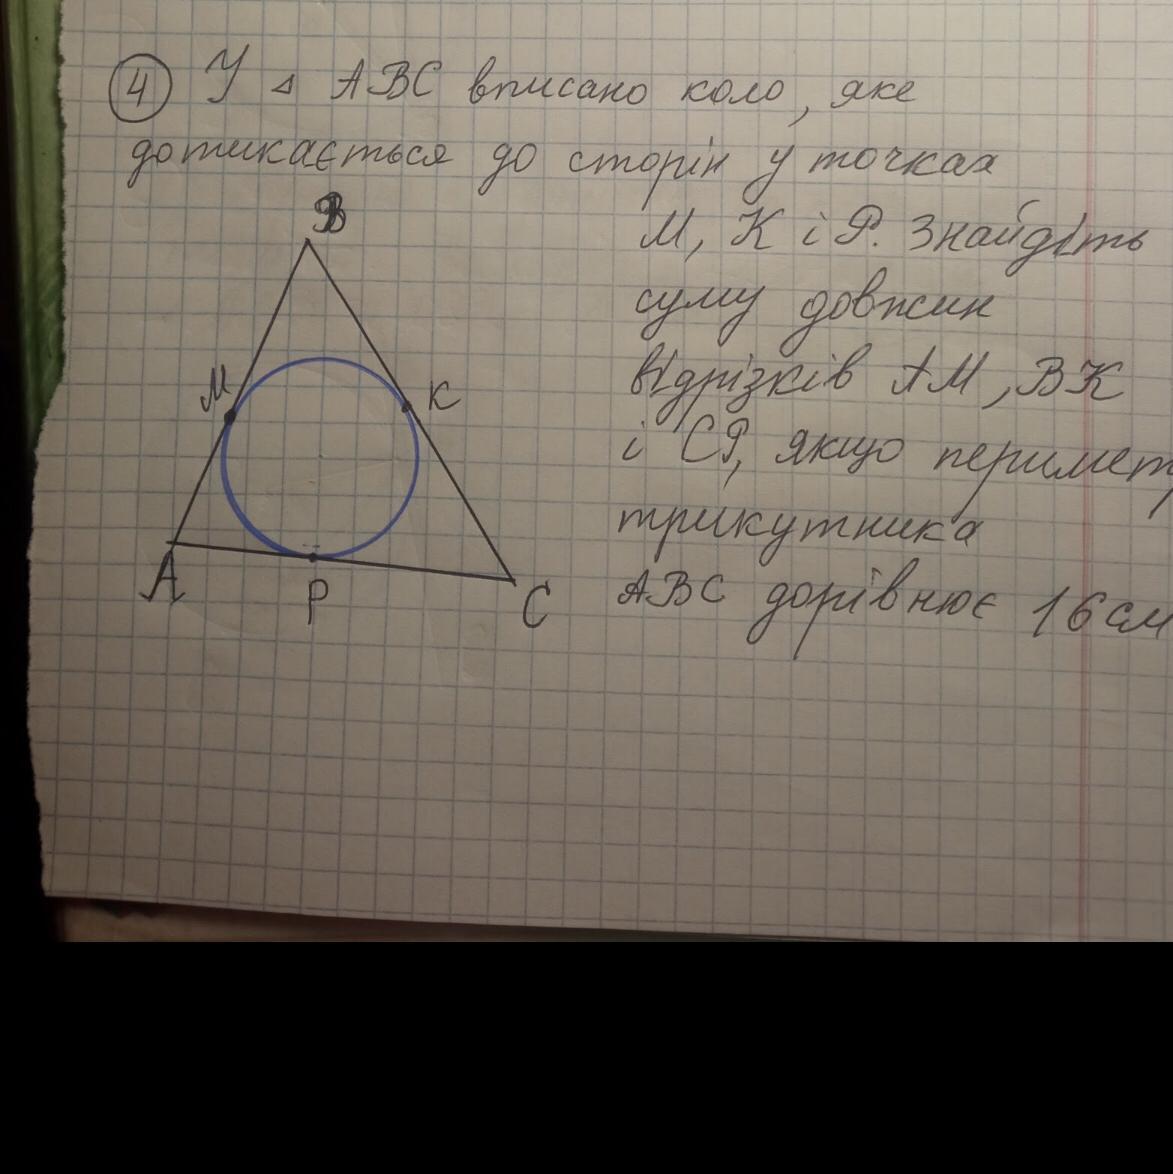 4 У △ ABC вписано коло, яке
дотикається до сторін у точках
M, K і P. Знайдіть
суму довжин
відрізків AM, BK
і CP, якщо периметр
трикутника
ABC дорівнює 16 см
B
M
K
A
P
C